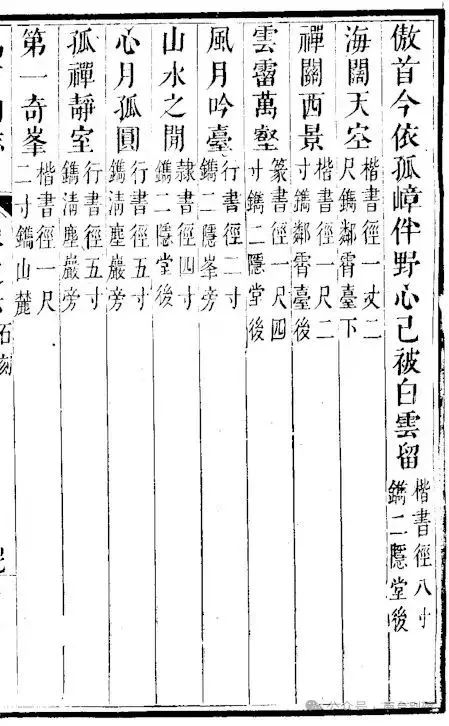 傲首今依孤嶂伴野心已被白雲留 楷書徑八寸
鐫二隱堂後
海闊天空 楷書徑一丈二
尺鐫鄰霄臺下
禪關西景 楷書徑一尺二
寸鐫鄰霄臺後
雲霤萬壑 篆書徑一尺四
寸鐫二隱堂後
風月吟臺 行書徑二寸
鐫二隱峯旁
山水之閒 隸書徑四寸
鐫二隱堂後
心月孤圓 行書徑五寸
鐫淸塵巖旁
孤禪靜室 行書徑五寸
鐫淸塵巖旁
第一奇峯 楷書徑一尺
二寸鐫山麓
石刻
公众号